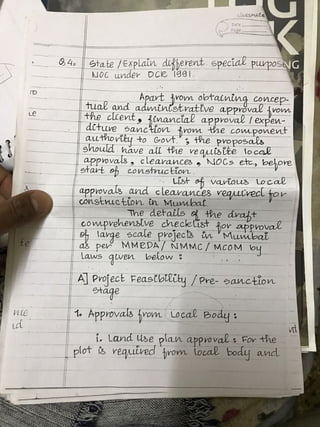 Classmate
Date
Page
Q.4. State/Explain different special purpose
NOC under DCR 1991.
Apart from obtaining concep-
tual and administrative approval from
the client, financial approval/expen-
diture sanction from the component
authority to Govt, the proposals
should have all the requisite local
approvals, clearances, NOCs etc, before
start of construction.
List of various local
approvals and clearances required for
construction in Mumbai
The details of the draft
comprehensive checklist for approval
of large scale projects in Mumbai
as per MMEDA/NMMC/MCOM by
laws given below :
A] Project Feasibility / Pre-sanction
stage
1. Approvals from Local Body :
i. Land Use plan approval : For the
plot is required from local body and